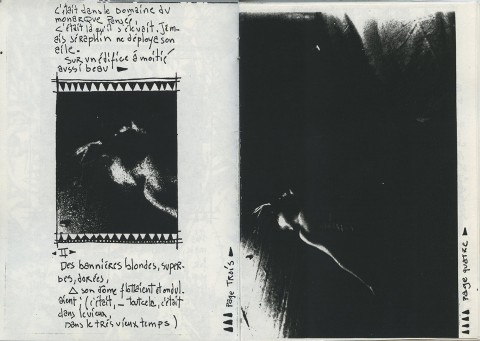 c'était dans le Domaine du
monarque Pensée,
c'était là qu'il s'élevait. Jam-
ais séraphin ne déploya son
aile
sur un édifice à moitié
aussi beau
II
Des bannières blondes, super-
bes, dorées,
à son dôme flottaient et ondul-
aient ; (c'était, — tout cela, c'était
dans le vieux,
dans le très vieux temps)
page Trois
page quatre